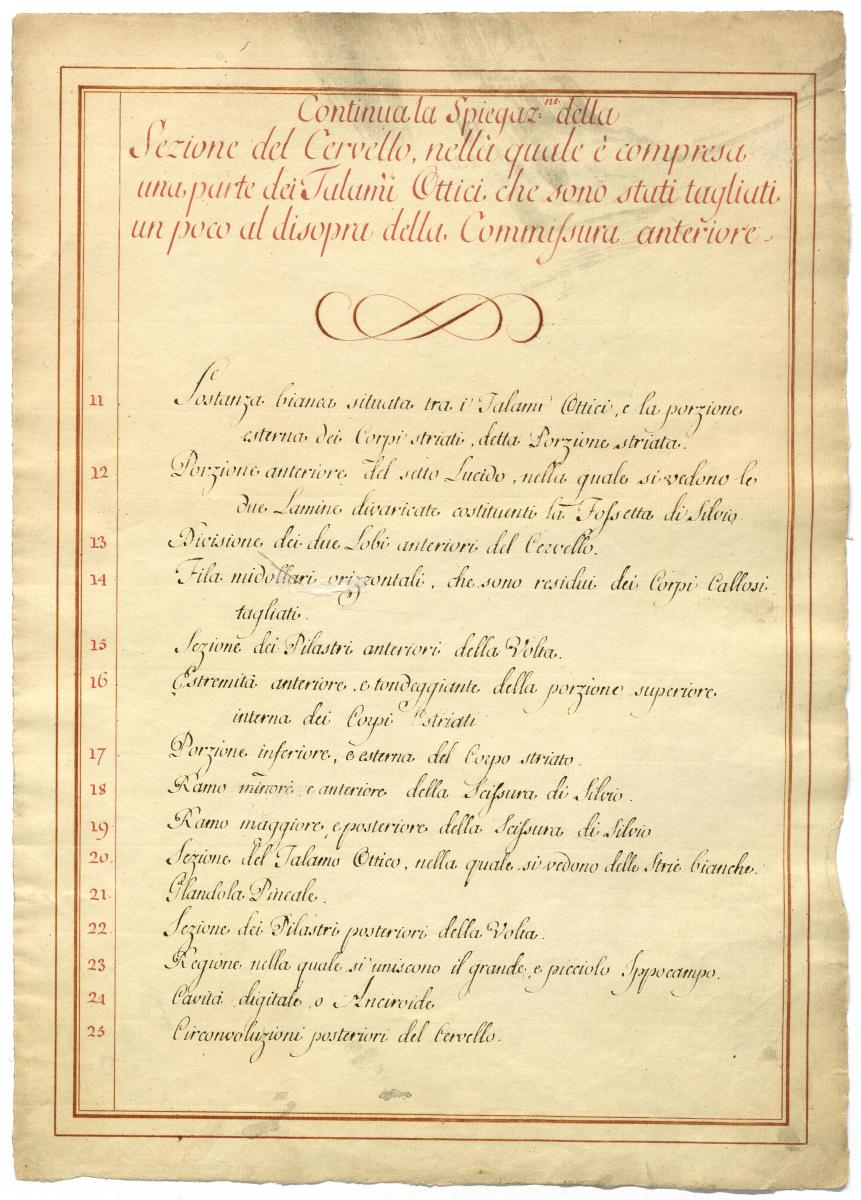 Continua la Spiegaz.ne della
Sezione del Cervello, nella quale è compresa
una parte dei Talami Ottici, che sono stati tagliati
un poco al disopra della Commiſsura anteriore.
11 Sostanza bianca situata tra i Talami Ottici, e la porzione
esterna dei Corpi striati, detta Porzione striata.
12 Porzione anteriore del setto Lucido, nella quale si vedono le
due Lamine divaricate costituenti la Foſsetta di Silvio
13 Divisione dei due Lobi anteriori del Cervello.
14 Fila midollari orizzontali, che sono residui dei Corpi Callosi
tagliati.
15 Sezione dei Pilastri anteriori della Volta.
16 Estremità anteriore, e tondeggiante della porzione superiore
interna dei Corpi striati
17 Porzione inferiore, e esterna del Corpo striato.
18 Ramo minore, e anteriore della Sciſsura di Silvio.
19 Ramo maggiore, e posteriore della Sciſsura di Silvio
20 Sezione del Talamo Ottico, nella quale si vedono delle Strie bianche.
21 Glandola Pineale.
22 Sezione dei Pilastri posteriori della Volta.
23 Regione nella quale si uniscono il grande, e picciolo Ippocampo.
24 Cavità digitale, o Anciroide
25 Circonvoluzioni posteriori del Cervello.